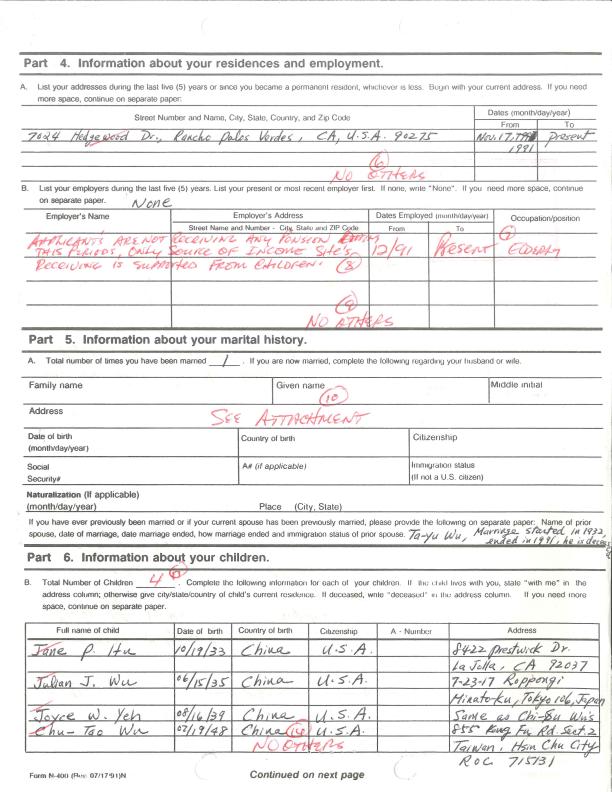 Part 4. Information about your residences and employment.
A. List your addresses during the last five (5) years or since you became a permanent resident, whichever is less. Begin with your current address. If you need
more space, continue on separate paper:
Street Number and Name, City, State, Country, and Zip Code
Dates (month/day/year)
From To
7024 Hedgewood Dr., Rancho Palos Verdes, CA, U.S.A. 90275 Nov. 17, Present
1991
6
NO OTHERS
B. List your employers during the last five (5) years. List your present or most recent employer first. If none, write "None". If you need more space, continue
on separate paper. None
Employer's Name Employer's Address Dates Employed (month/day/year) Occupation/position
Street Name and Number - City, State and ZIP Code From To
7
APPLICANTS ARE NOT RECEIVING ANY PENSION
THIS PERIODS, ONLY SOURCE OF INCOME SHE'S 12/91 PRESENT ELDERLY
RECEIVING IS SUPPORTED FROM CHILDREN. 8
9
NO OTHERS
Part 5. Information about your marital history.
A. Total number of times you have been married 1 . If you are now married, complete the following regarding your husband or wife.
Family name Given name Middle initial
10
Address SEE ATTACHMENT
Date of birth Country of birth Citizenship
(month/day/year)
Social A# (if applicable) Immigration status
Security# (If not a U.S. citizen)
Naturalization (If applicable)
(month/day/year) Place (City, State)
If you have ever previously been married or if your current spouse has been previously married, please provide the following on separate paper: Name of prior
spouse, date of marriage, date marriage ended, how marriage ended and immigration status of prior spouse. Ta-yu Wu, Marriage started in 1932,
ended in 1991, he is
Part 6. Information about your children.
B. Total Number of Children 4 . Complete the following information for each of your children. If the child lives with you, state "with me" in the
address column; otherwise give city/state/country of child's current residence. If deceased, write "deceased" in the address column. If you need more
space, continue on separate paper.
Full name of child Date of birth Country of birth Citizenship A - Number Address
Jane P. Hu 10/19/33 China U.S.A. 8422 Prestwick Dr.
La Jolla, CA 92037
Julian J. Wu 06/15/35 China U.S.A. 7-23-17 Roppongi
Minato-Ku, Tokyo 106, Japan
Joyce W. Yeh 08/16/39 China U.S.A. Same as Chi-Su Wu's
Chu-Tao Wu 02/19/48 China U.S.A. 855 Kung Fu Rd. Sect. 2
NO OTHERS Taiwan, Hsin Chu City
R.O.C 715131
Form N-400 (Rev. 07/17/91)N Continued on next page